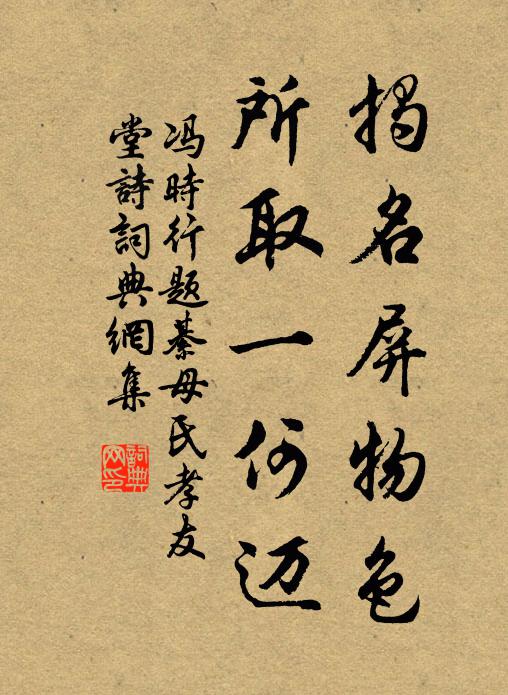 揭名屏物色
所取一何迈
冯時行题綦母氏孝友
堂詩詞典網集
詞典網印